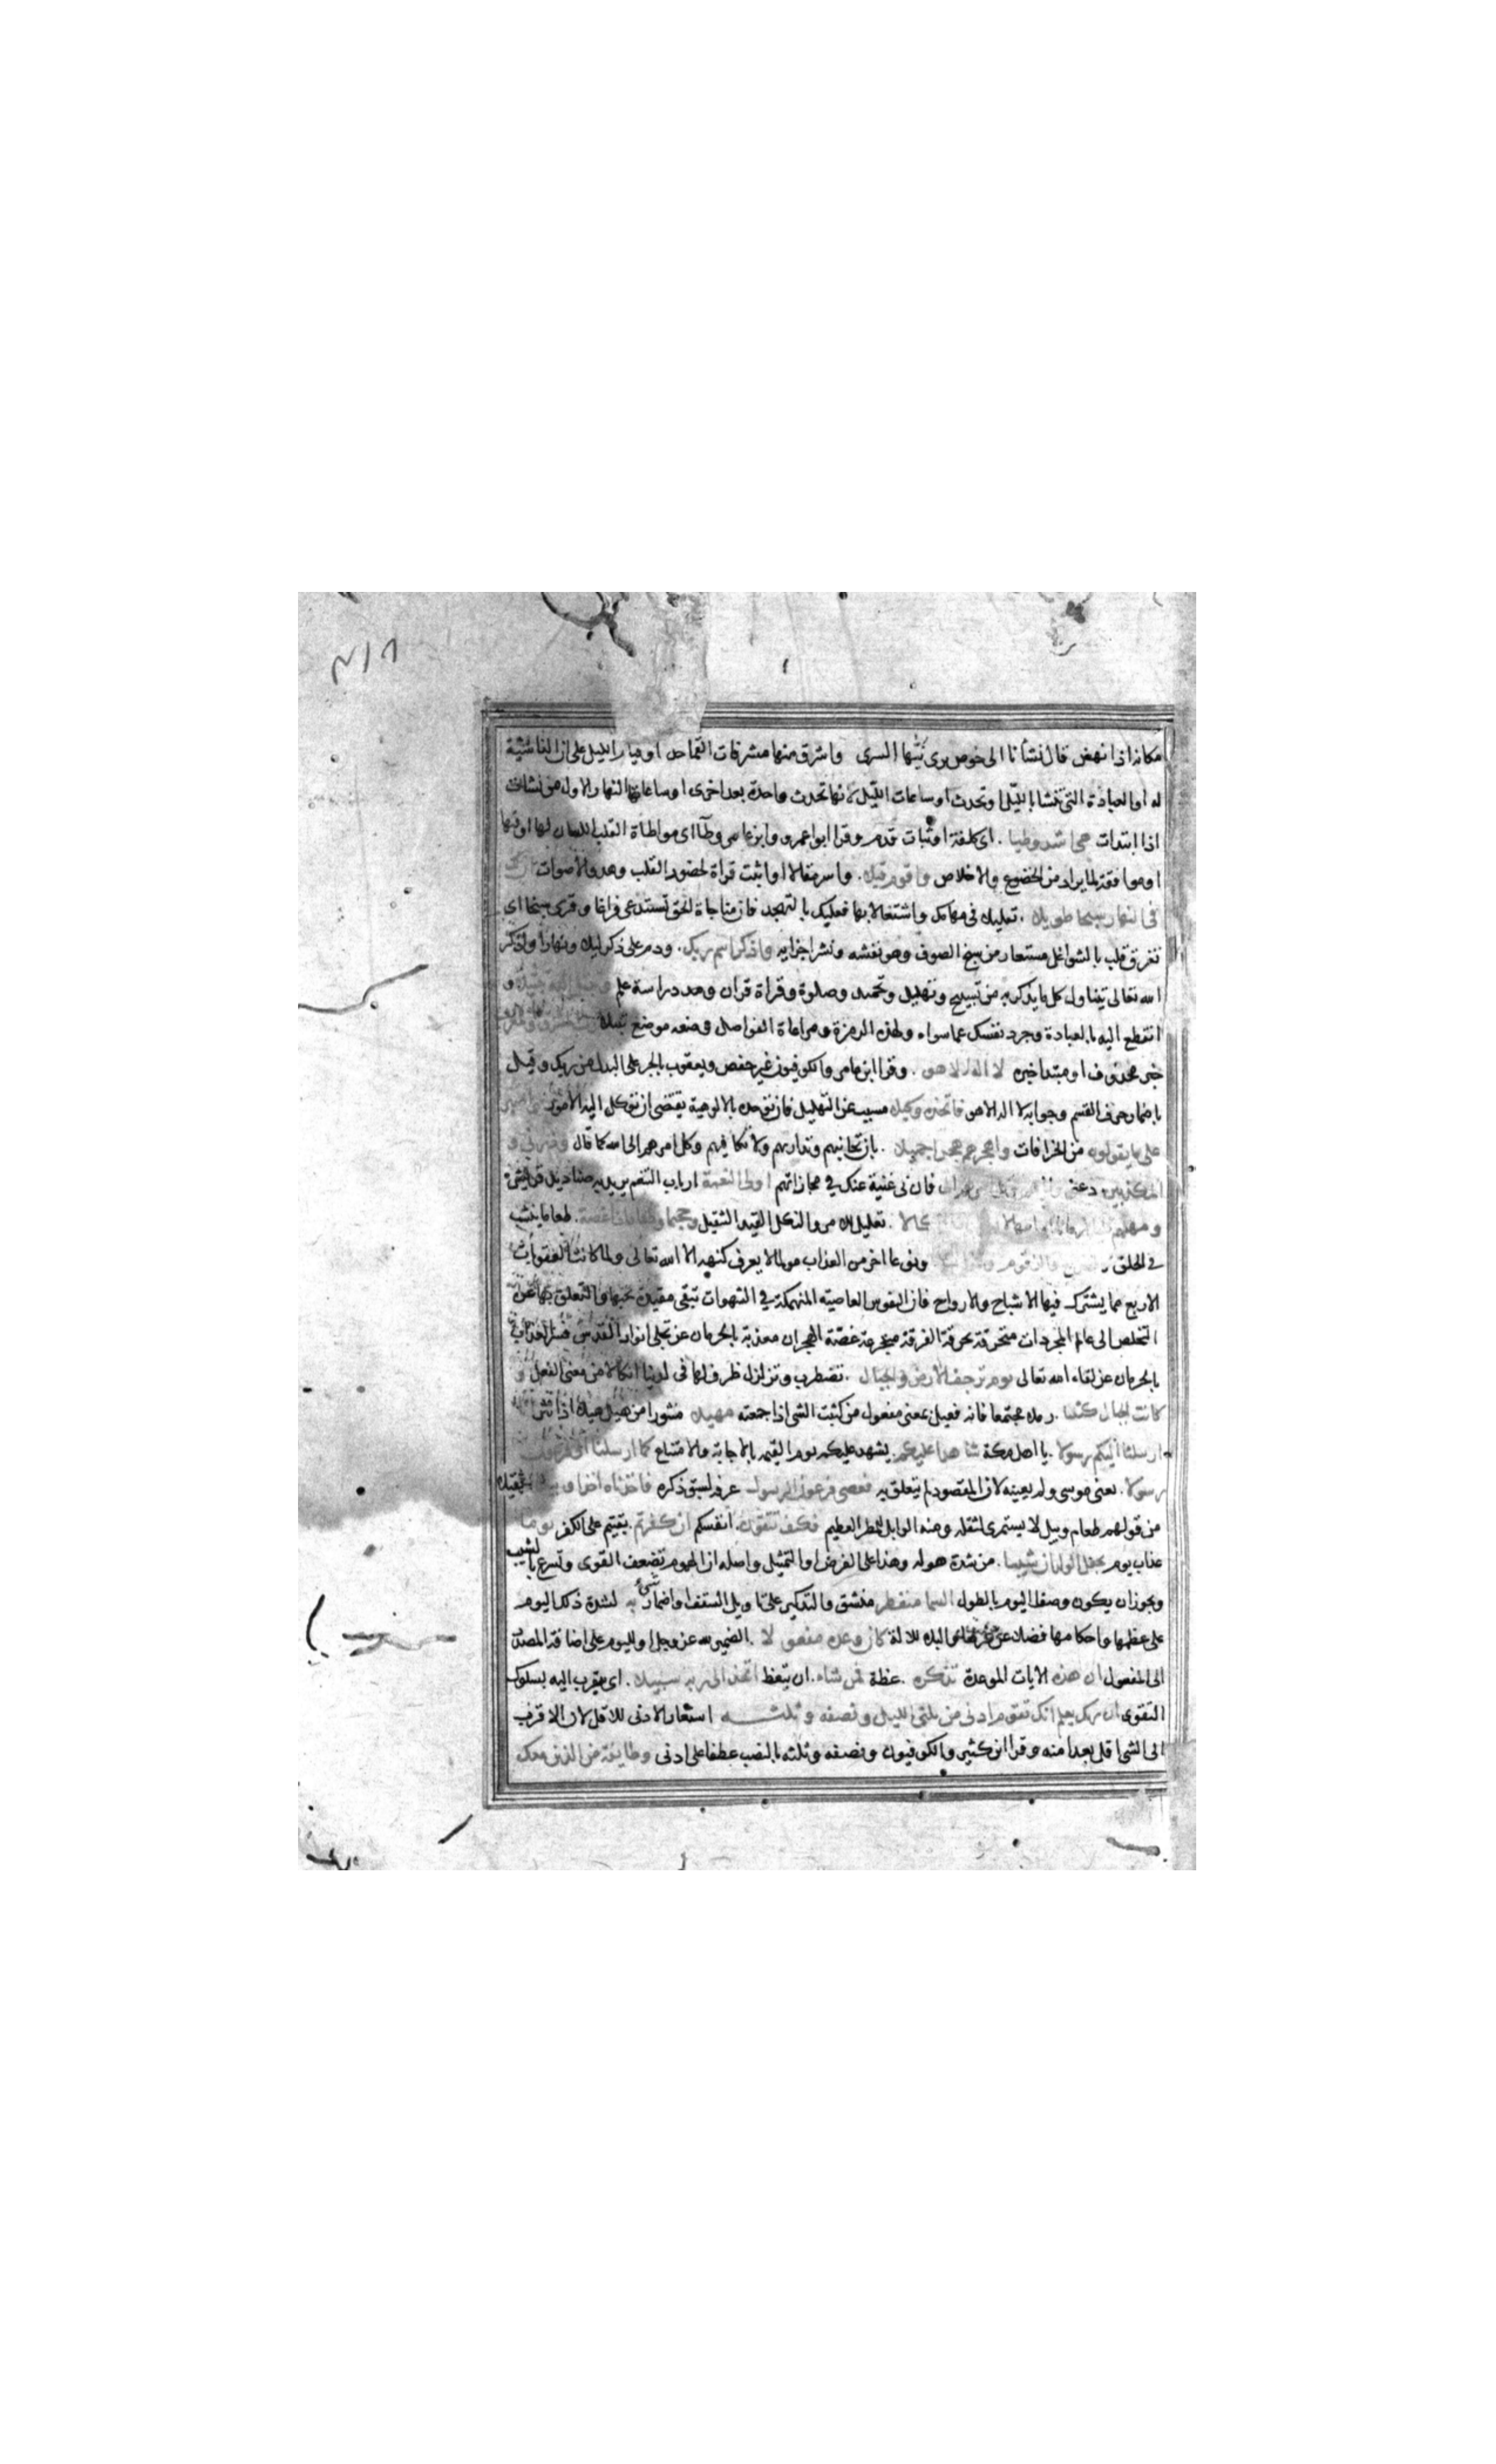 ٢١٦
مكانه اذا نهض قال نشأنا الى خوص برى نيها السرى واشرق منها مشرفات القماحد او قيام الليل على ان الناشئة
له او العبادة التى تنشا بالليل اى تحدث او ساعات الليل لانها تحدث واحدة بعد اخرى او ساعاتها الاول من نشات
اذا ابتدات هى اشد وطيا . اى كلفة او ثبات قدم وقرا ابو عمرو وابن عامر وطآ اى مواطاة القلب اللسان لها او فيها
او موافقة لما يراد من الخضوع والاخلاص واقوم قيلا . واسد مقالا او اثبت قراة لحضور القلب وهدو الاصوات ان لك
فى النهار سبحا طويلا . تقلبا فى مهامك واشتغالا بها فعليك بالتهجد فان مناجاة الحق تستدعى فراغا وقرى سبخا اى
تفرق قلب بالشواغل مستعار من سبخ الصوف وهو نفشه ونشر اجزايه واذكر اسم ربك . ودم على ذكره ليلا ونهارا وذكر
الله تعالى يتناول كل ما يذكر به من تسبيح وتهليل وتحميد وصلوة وقراة قران ودراسة علم وتبتل اليه تبتيلا و
انقطع اليه بالعبادة وجرد نفسك عما سواه ولهذه الرمزة ومراعاة الفواصل وضعه موضع تبتلا
خبر محذوف او مبتدا خبره لا اله الا هو . وقرا ابن عامر والكوفيون غير حفص ويعقوب بالجر على البدل من ربك وقيل
باضمار حرف القسم وجوابه لا اله الا هو فاتخذه وكيلا مسبب عن التهليل فان توحده بالالوهية يقتضى ان توكل اليه الامور واصبر
على ما يقولون من الخرافات واهجرهم هجرا جميلا . بان تجانبهم وتداريهم ولا تكافيهم وتكل امرهم الى الله كما قال وذرنى و
المكذبين دعنى فان بى غنية عنك فى مجازاتهم اولى النعمة ارباب التنعم يريد به صناديد قريش
ومهلهم . تعليل للامر والنكل القيد الثقيل وجحيما وطعاما ذا غصة . طعاما ينشب
فى الحلق ونوعا اخر من العذاب مولما لا يعرف كنهه الا الله تعالى ولما كانت العقوبات
الاربع مما يشترك فيها الاشباح والارواح فان النفوس العاصية المنهمكة فى الشهوات تبقى مقيدة بحبها والتعلق بها عن
التخلص الى عالم المجردات متحرقة بحرقة الفرقة متجرعة غصة الهجران معذبة بالحرمان عن تجلى انوار القدس فسر العذاب
بالحرمان عن لقاء الله تعالى يوم ترجف الارض والجبال . تضطرب وتزلزل ظرف لما فى لدينا انكالا من معنى الفعل و
كانت الجبال كثيبا . رملا مجتمعا فانه فعيل بمعنى مفعول من كثبت الشى اذا جمعته مهيلا منثورا من هيل هيلا اذا نثر انا
ارسلنا اليكم رسولا . يا اهل مكة شاهدا عليكم . يشهد عليكم يوم القيمة بالاجابة والامتناع كما ارسلنا الى فرعون
رسولا . يعنى موسى ولم يعينه لان المقصود لم يتعلق به فعصى فرعون الرسول عرفه لسبق ذكره فاخذناه اخذا وبيلا ثقيلا
من قولهم طعام وبيل لا يستمرى لثقله ومنه الوابل للمطر العظيم فكيف تتقون . انفسكم ان كفرتم . بقيتم على الكفر يوما
عذاب يوم يجعل الولدان شيبا . من شدة هوله وهذا على الفرض او التمثيل واصله ان الهموم تضعف القوى وتسرع بالشيب
ويجوز ان يكون وصفا لليوم بالطول السما منفطر منشق والتذكير على تاويل السقف او اضمار شئ به لشدة ذلك اليوم
على عظمها واحكامها فضلا عن غيرها والبا للالة كان وعده مفعولا . الضمير لله عز وجل او لليوم على اضافة المصدر
الى المفعول ان هذه الايات الموعدة تذكرة . عظة فمن شاء . ان يتعظ اتخذ الى ربه سبيلا . اى يتقرب اليه بسلوك
التقوى ان ربك يعلم انك تقوم ادنى من ثلثى الليل ونصفه وثلثه استعار الادنى للاقل لان الاقرب
الى الشى اقل بعدا منه وقرا ابن كثير والكوفيون ونصفه وثلثه بالنصب عطفا على ادنى وطايفة من الذين معك